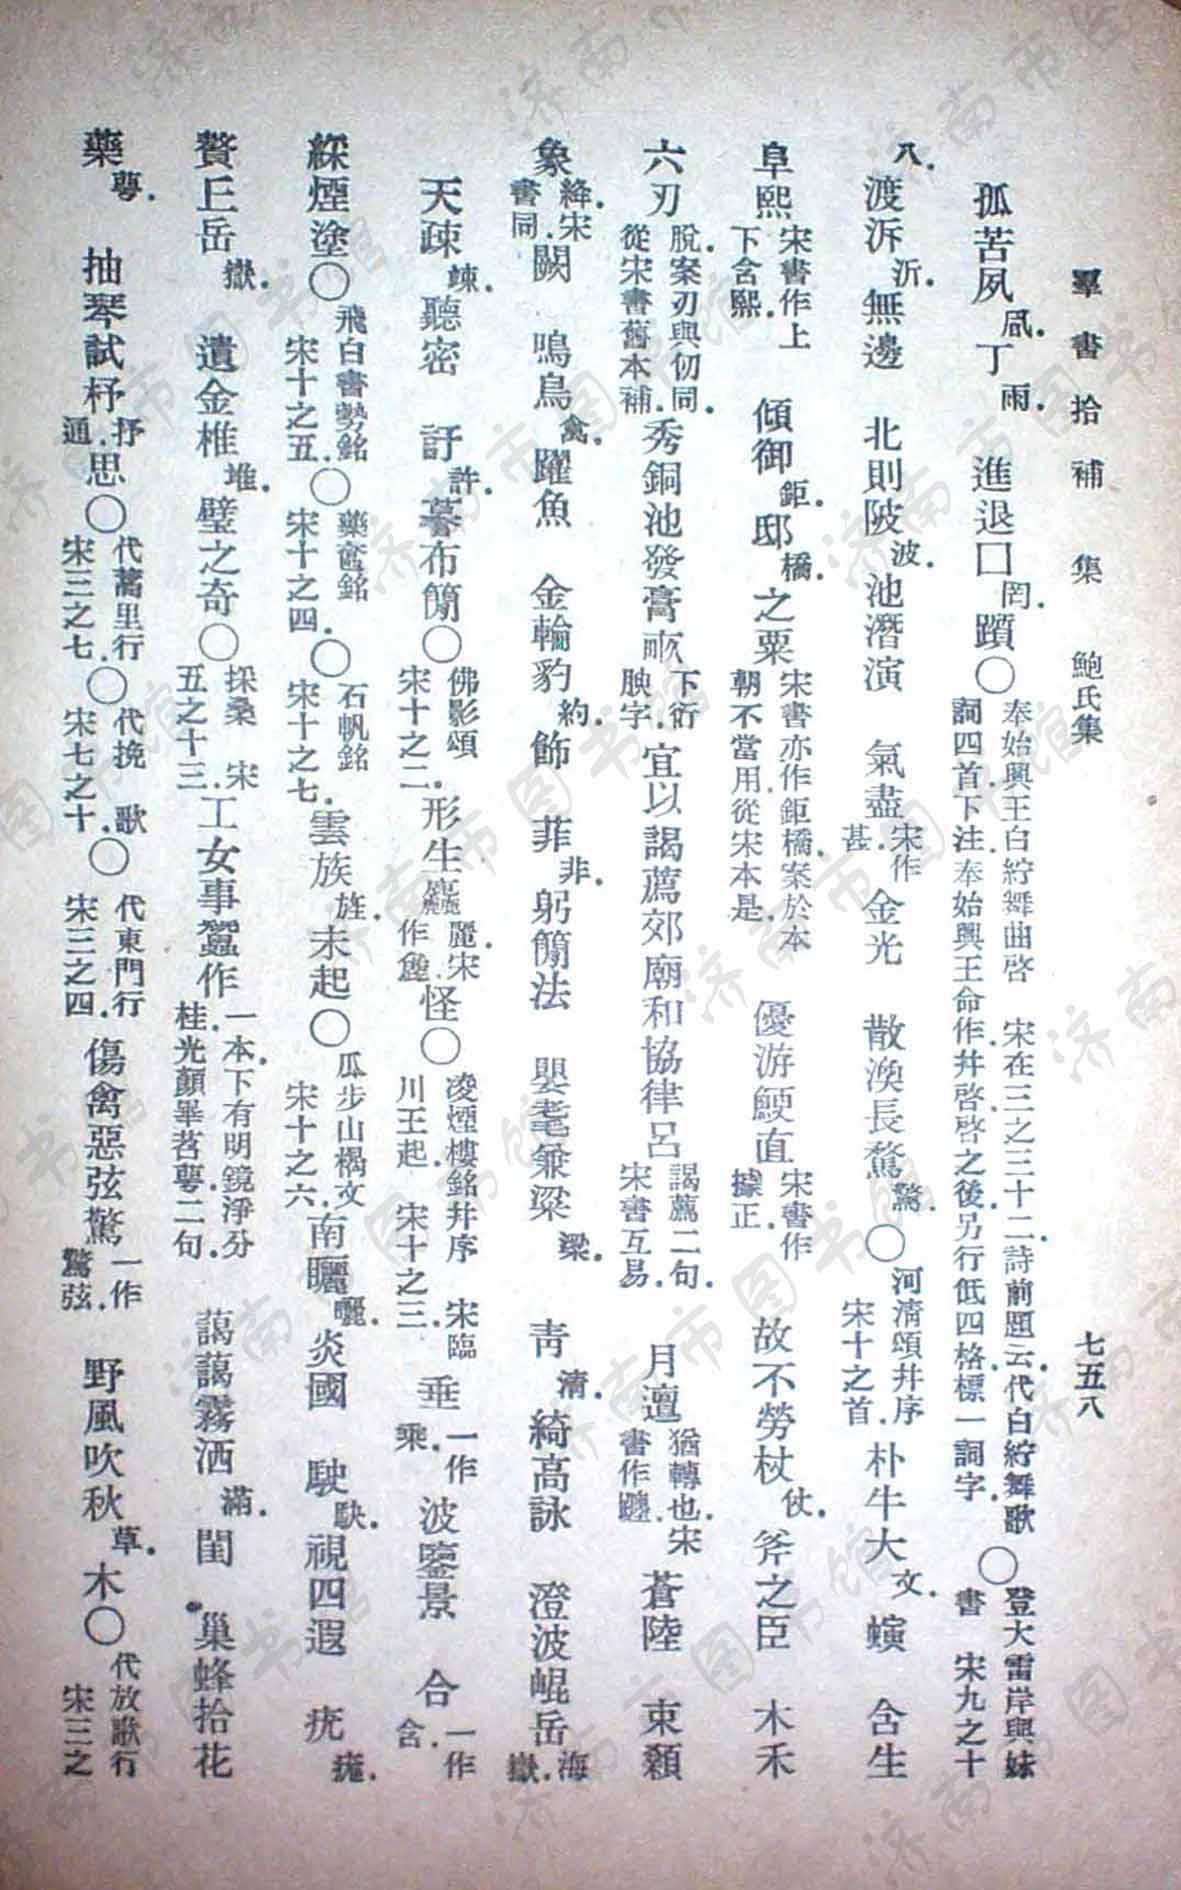 羣書拾補 集 鮑氏集 七五八
孤苦夙凨.丁雨. 進退囗罔.躓〇奉始興王白紵舞曲啓 宋在三之三十二詩前題云.代白紵舞歌詞四首下注.奉始興王命作.幷啓.啓之後另行低四格標一詞字.〇登大雷岸與妹書 宋九之十
八.渡泝沂.無邊 北則陂波.池潛演 氣盡宋作甚.金光 散渙長騖驚.〇河清頌幷序宋十之首.朴牛大文.螾 含生
阜熙宋書作上下含熙. 傾御鉅.邸橋.之粟宋書亦作鉅橋.案於本朝不當用.從宋本是. 優游鯁直宋書作據正. 故不勞杖仗.斧之臣 木禾
六刃脫.案刃與仞同.從宋書舊本補.秀銅池發膏畝下衍腴字.宜以謁薦郊廟和協律呂謁薦二句.宋書互易. 月邅猶轉也.宋書作躔.蒼陸 東纇
象絳.宋書同.闕 鳴鳥禽.躍魚 金輪豹約.飾 菲非.躬簡法 嬰耄兼粱梁. 靑清.綺高詠 澄波崐岳海嶽.
天疎竦.聽密 訏許.謩布簡〇佛影頌宋十之二.形生麤麗.宋作麁.怪〇凌煙樓銘幷序 宋臨川王起. 宋十之三.垂一作乘.波鑒景 合一作含.
綵煙塗〇飛白書勢銘宋十之五.〇藥奩銘宋十之四.〇石帆銘宋十之七.雲族旌.未起〇瓜步山楬文宋十之六.南矖曬.炎國 駛駃.視四遐 疣癰.
贅丘岳嶽. 遺金椎堆.壁之奇〇採桑 宋五之十三.工女事蠶作一本.下有明鏡淨分桂.光顏畢苕蕚.二句. 藹藹霧洒滿.閨 巢蜂拾花
藥蕚. 抽琴試杼抒通.思〇代蒿里行宋三之七.〇代挽歌宋七之十.〇代東門行宋三之四.傷禽惡弦驚一作驚弦. 野風吹秋草.木〇代放歌行宋三之